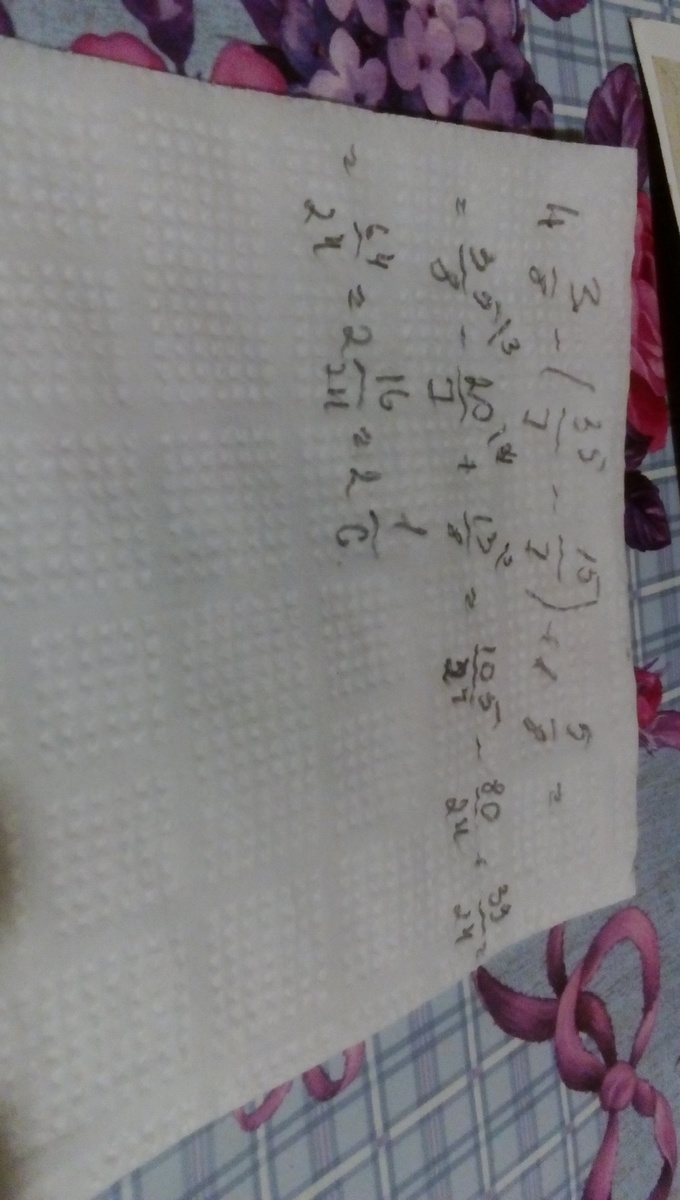 4 3/8 - (35/7 - 15/7) + 1 5/8 =
= 35/8 \3 - 20/7 \4 + 13/8 \3 = 105/24 - 80/24 + 39/24 =
= 64/24 = 2 16/24 = 2 1/6